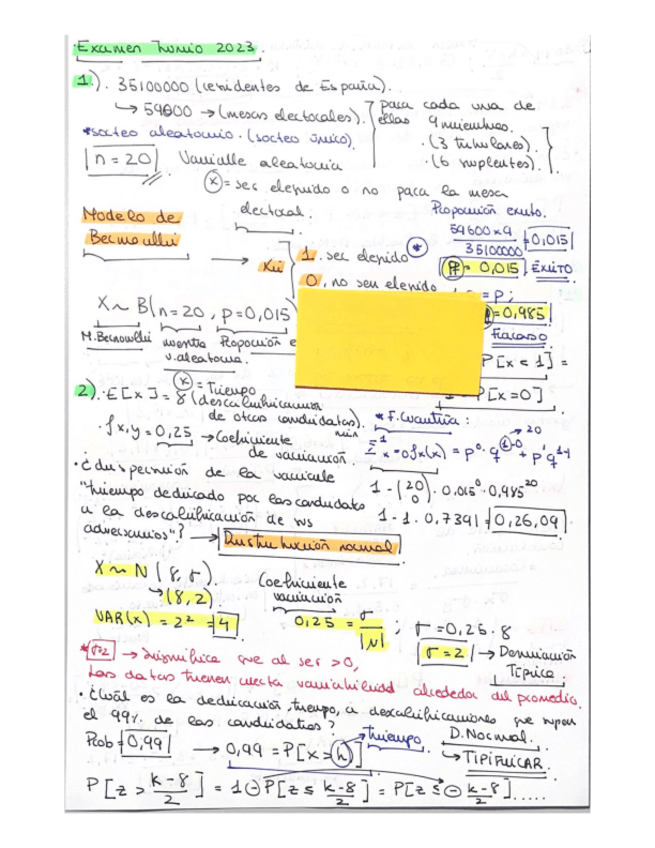 ·Examen Junio 2023.
1.). 35100000 (residentes de España).
↳ 59600 → (mesas electorales). para cada una de ellas 9 miembros.
*sorteo aleatorio. (sorteo único). · (3 titulares).
n = 20 Variable aleatoria · (6 suplentes).
(x) = ser elegido o no para la mesa
electoral. Proporción éxito.
Modelo de 59600 x 9 / 35100000 = 0,015
Bernoulli → Xi 1. ser elegido * P = 0,015. ÉXITO
0, no ser elegido = P;
X ~ B(n = 20, p = 0,015 = 0,985
M. Bernoulli muestra Proporción e Fracaso.
v. aleatoria. P[x < 1] =
P[x=0]
2). · E[x] = 8 (x) = Tiempo (descalificaciones
de otros candidatos). * F. Cuantía: → 20
· fx,y = 0,25 → Coeficiente
de variación. x=0 f(x) = p⁰ · q
· ¿dispersión de la variable
"tiempo dedicado por los candidatos 1 - (20 0) · 0,015⁰ · 0,985²⁰
a la descalificación de sus 1 - 1 · 0,7391 = 0,26,09
adversarios"? → Distribución normal
X ~ N (8, σ). Coeficiente
↳ (8, 2). variación
VAR(x) = 2² = 4 0,25 = σ / |N| ; σ = 0,25 · 8
σ = 2 → Desviación
Típica.
* σ2 → Significa que al ser > 0,
los datos tienen cierta variabilidad alrededor del promedio.
· ¿Cuál es la dedicación, tiempo, a descalificaciones que superan
el 99% de los candidatos?
Prob = 0,99 → 0,99 = P[x > k] → tiempo D. Normal.
↳ TIPIFICAR.
P[z > k-8 / 2] = 1 - P[z ≤ k-8 / 2] = P[z ≤ - k-8 / 2].....